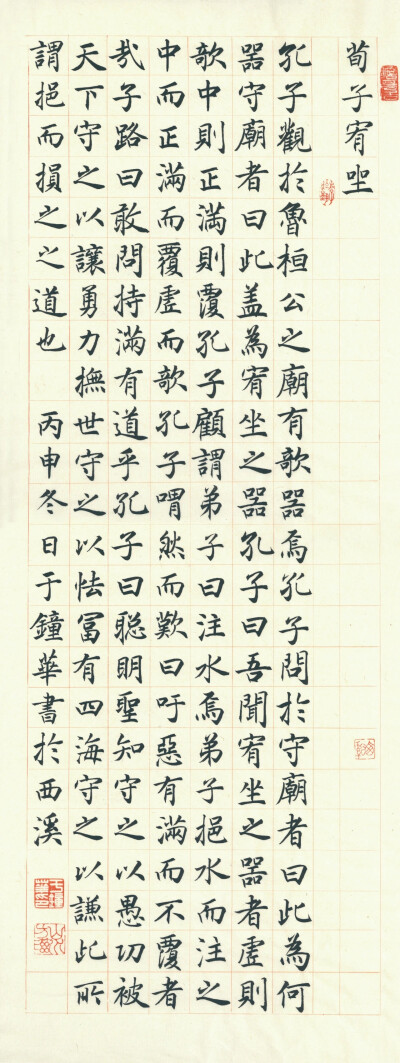 荀子宥坐
孔子觀於魯桓公之廟有欹器焉孔子問於守廟者曰此為何
器守廟者曰此盖為宥坐之器孔子曰吾聞宥坐之器者虛則
欹中則正滿則覆孔子顧謂弟子曰注水焉弟子挹水而注之
中而正滿而覆虛而欹孔子喟然而歎曰吁惡有滿而不覆者
哉子路曰敢問持滿有道乎孔子曰聰明聖知守之以愚功被
天下守之以讓勇力撫世守之以怯冨有四海守之以謙此所
謂挹而損之之道也 丙申冬日于鐘華書於西溪